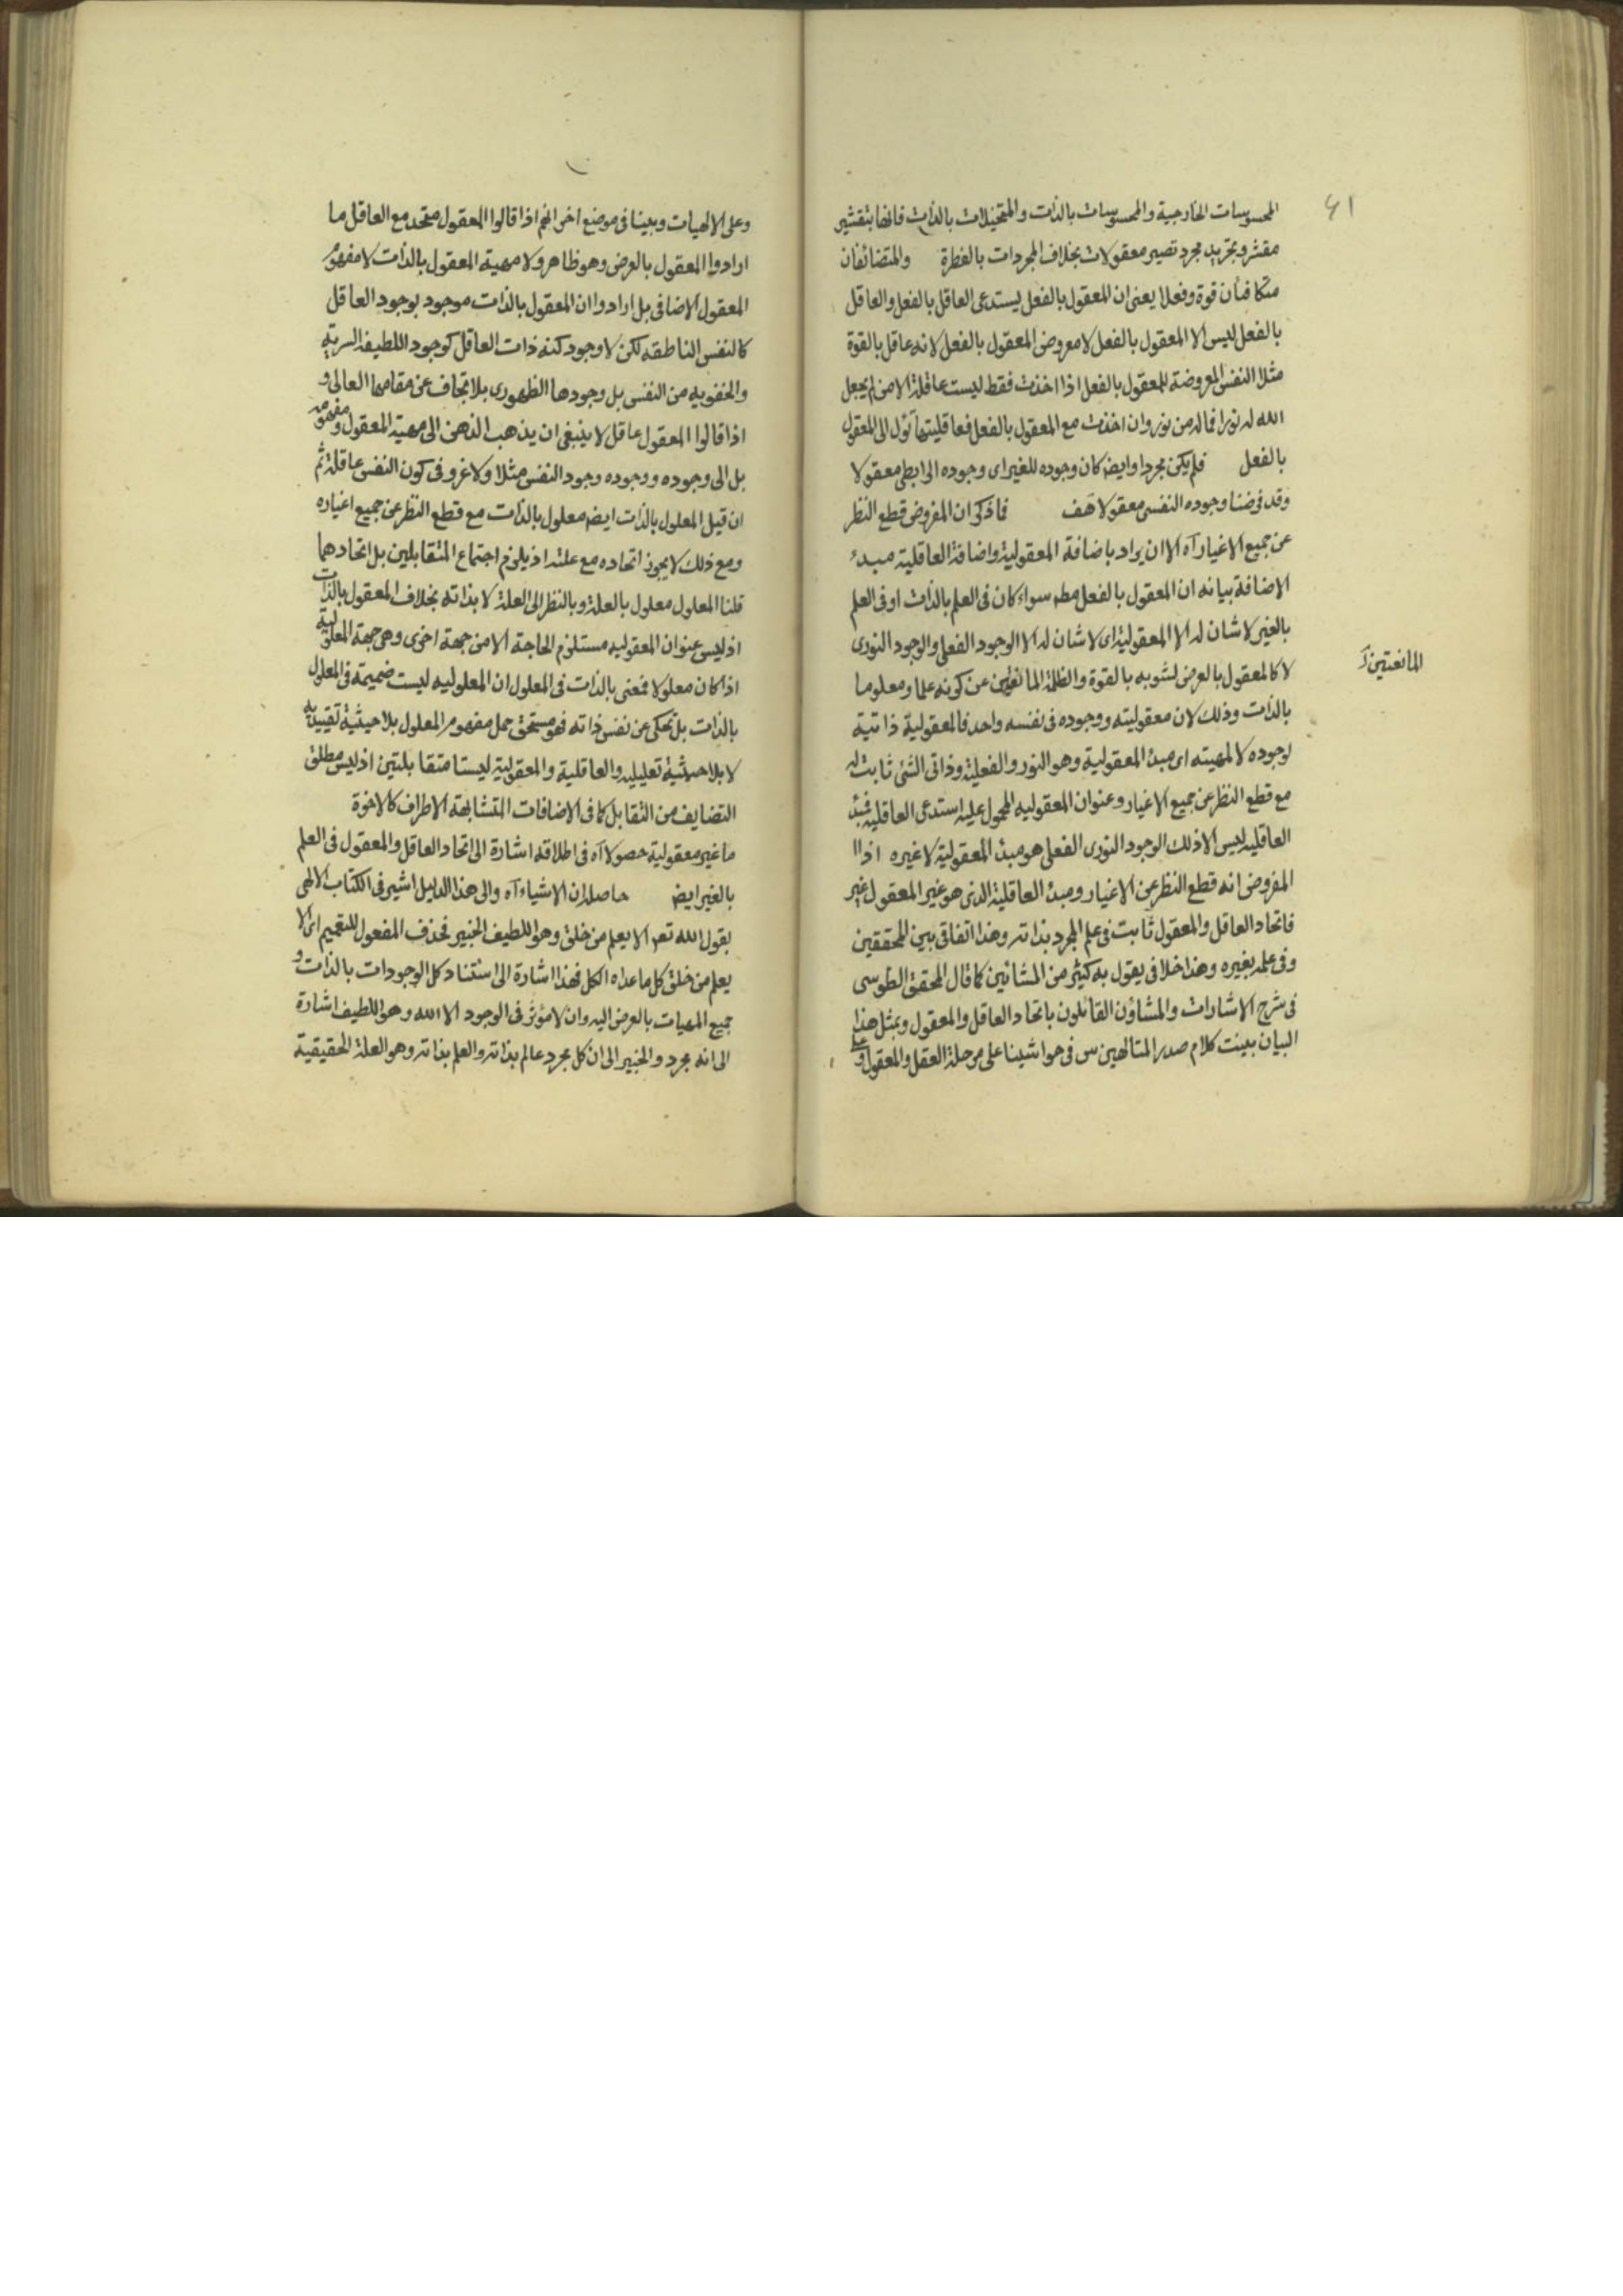 ٤١
المحسوسات الخارجية والمحسوسات بالذات والمتخيلات بالذات فانها بتقشير
مقشر وتجريد مجرد تصير معقولات بخلاف المجردات بالفطرة والمتضائفان
متكافئان قوة وفعلا يعنى ان المعقول بالفعل يستدعى العاقل بالفعل والعاقل
بالفعل ليس الا المعقول بالفعل لا معروض المعقول بالفعل لانه عاقل بالقوة
مثلا النفس المعروضة للمعقول بالفعل اذا اخذت فقط ليست عاقلة الا من لم يجعل
الله له نورا فما له من نور وان اخذت مع المعقول بالفعل فعاقليتها تؤل الى المعقول
بالفعل فلم يكن مجردا وايضا كان وجوده للغير اى وجوده الرابطى معقولا
وقد فرضنا وجوده النفسى معقولا هف فما ذكر ان المفروض قطع النظر
عن جميع الاغيار آه الا ان يراد باضافة المعقولية واضافة العاقلية مبدء
الاضافة بيانه ان المعقول بالفعل مطم سواء كان فى العلم بالذات او فى العلم
بالغير لا شان له الا المعقولية اى لا شان له الا الوجود الفعلى والوجود النورى
لا كالمعقول بالعرض لشوبه بالقوة والظلمة المانعتين عن كونه علما ومعلوما
المانعتين
بالذات وذلك لان معقوليته ووجوده فى نفسه واحد فالمعقولية ذاتية
لوجوده لا لمهيته اى مبدء المعقولية وهو النور والفعلية وذاتى الشئ ثابت له
مع قطع النظر عن جميع الاغيار وعنوان المعقوليه المحمول عليه استدعى العاقلية فمبدء
العاقليه ليس الا ذلك الوجود النورى الفعلى هو مبدء المعقولية لا غيره اذ
المفروض انه قطع النظر عن الاغيار ومبدء العاقلية الذى هو غير المعقول غير
فاتحاد العاقل والمعقول ثابت فى علم المجرد بذاته وهذا اتفاقى بين المحققين
وفى علمه بغيره وهذا خلافى يقول به كثير من المشائين كما قال المحقق الطوسى
فى شرح الاشارات والمشاؤن القائلون باتحاد العاقل والمعقول وبمثل هذا
البيان بينت كلام صدر المتالهين س فى حواشينا على مرحلة العقل والمعقول وعلى
وعلى الالهيات وبينا فى موضع اخر انهم اذا قالوا المعقول متحد مع العاقل ما
ارادوا المعقول بالعرض وهو ظاهر ولا مهية المعقول بالذات لا مفهوم
المعقول الاضافى بل ارادوا ان المعقول بالذات موجود بوجود العاقل
كالنفس الناطقه لكن لا وجود كنه ذات العاقل كوجود اللطيفه السريه
والخفويه من النفس بل وجودها الظهورى بلا تجاف عن مقامها العالى و
اذا قالوا المعقول عاقل لا ينبغى ان يذهب الذهن الى مهية المعقول ومفهومه
بل الى وجوده ووجوده وجود النفس مثلا ولا غرو فى كون النفس عاقلة ثم
ان قيل المعلول بالذات ايضا معلول بالذات مع قطع النظر عن جميع اغياره
ومع ذلك لا يجوز اتحاده مع علته اذ يلزم اجتماع المتقابلين بل اتحادهما
قلنا المعلول معلول بالعلة وبالنظر الى العلة لا بذاته بخلاف المعقول بالذات
اذ ليس عنوان المعقوليه مستلزم الحاجة الا من جهة اخرى وهى جهة المعلولية
اذا كان معلولا فمعنى بالذات فى المعلول ان المعلوليه ليست ضميمة فى المعلول
بالذات بل تحكى عن نفس ذاته فهو مستحق حمل مفهوم المعلول بلا حيثية تقييديه
لا بلا حيثية تعليليه والعاقلية والمعقولية ليستا متقابلتين اذ ليس مطلق
التضايف من التقابل كما فى الاضافات المتشابهة الاطراف كالاخوة
ما غير معقولية حصولا آه فى اطلاقه اشارة الى اتحاد العاقل والمعقول فى العلم
بالغير ايضا حاصله ان الاشياء آه والى هذا الدليل اشير فى الكتاب الالهى
بقول الله تعم الا يعلم من خلق وهو اللطيف الخبير فحذف المفعول للتعميم اى الا
يعلم من خلق كل ما عداه الكل فهذا اشارة الى استناد كل الوجودات بالذات و
جميع المهيات بالعرض اليه وان لا مؤثر فى الوجود الا الله وهو اللطيف اشارة
الى انه مجرد والخبير الى ان كل مجرد عالم بذاته والعلم بذاته وهو العلة الحقيقية